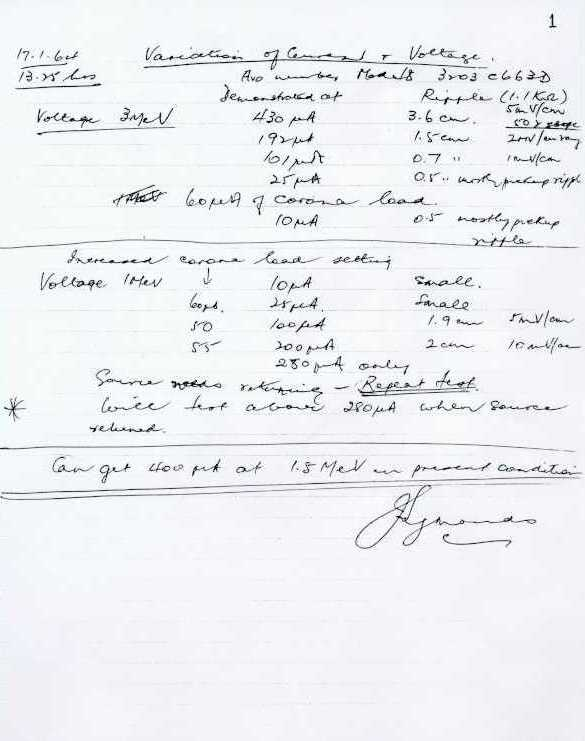 1
17.1.64 Variation of Current & Voltage.
13.25 hrs Avo number Model 8 3203 C663D
Demonstrated at Ripple (1.1KΩ)
Voltage 3MeV 430 µA 3.6 cm. 5mV/cm
192µA 1.5cm 2mV/cm
101µA 0.7 " 1mV/cm
25µA 0.5 " mostly pickup ripple
60µA of corona load.
10µA 0.5 mostly pickup
ripple
Increased corona load setting
Voltage 1MeV ↓ 10µA small.
60µA 25µA. small
50 100µA 1.9 cm 5mV/cm
55 200µA 2 cm 10mV/cm
280µA only
Source needs retuning - Repeat test.
* Will test above 280µA when source
retuned.
Can get 400 µA at 1.5 MeV in present condition